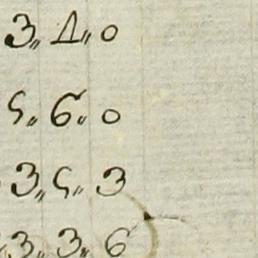 3,, 1,, 0
5,, 6,, 0
3,, 5,, 3
3,, 3,, 6